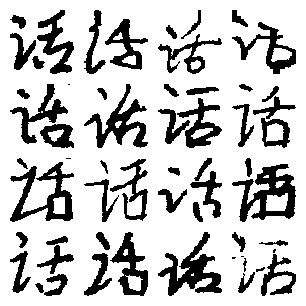 话话话话
话话话话
话话话话
话话话话